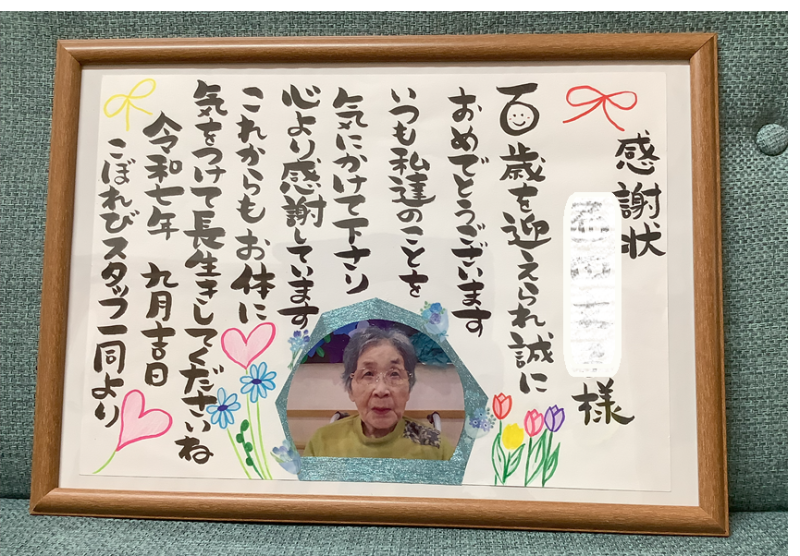 感謝状
様
百歳を迎えられ誠に
おめでとうございます
いつも私達のことを
気にかけて下さり
心より感謝しています
これからもお体に
気をつけて長生きしてくださいね
令和七年 九月吉日
こぼれびスタッフ一同より